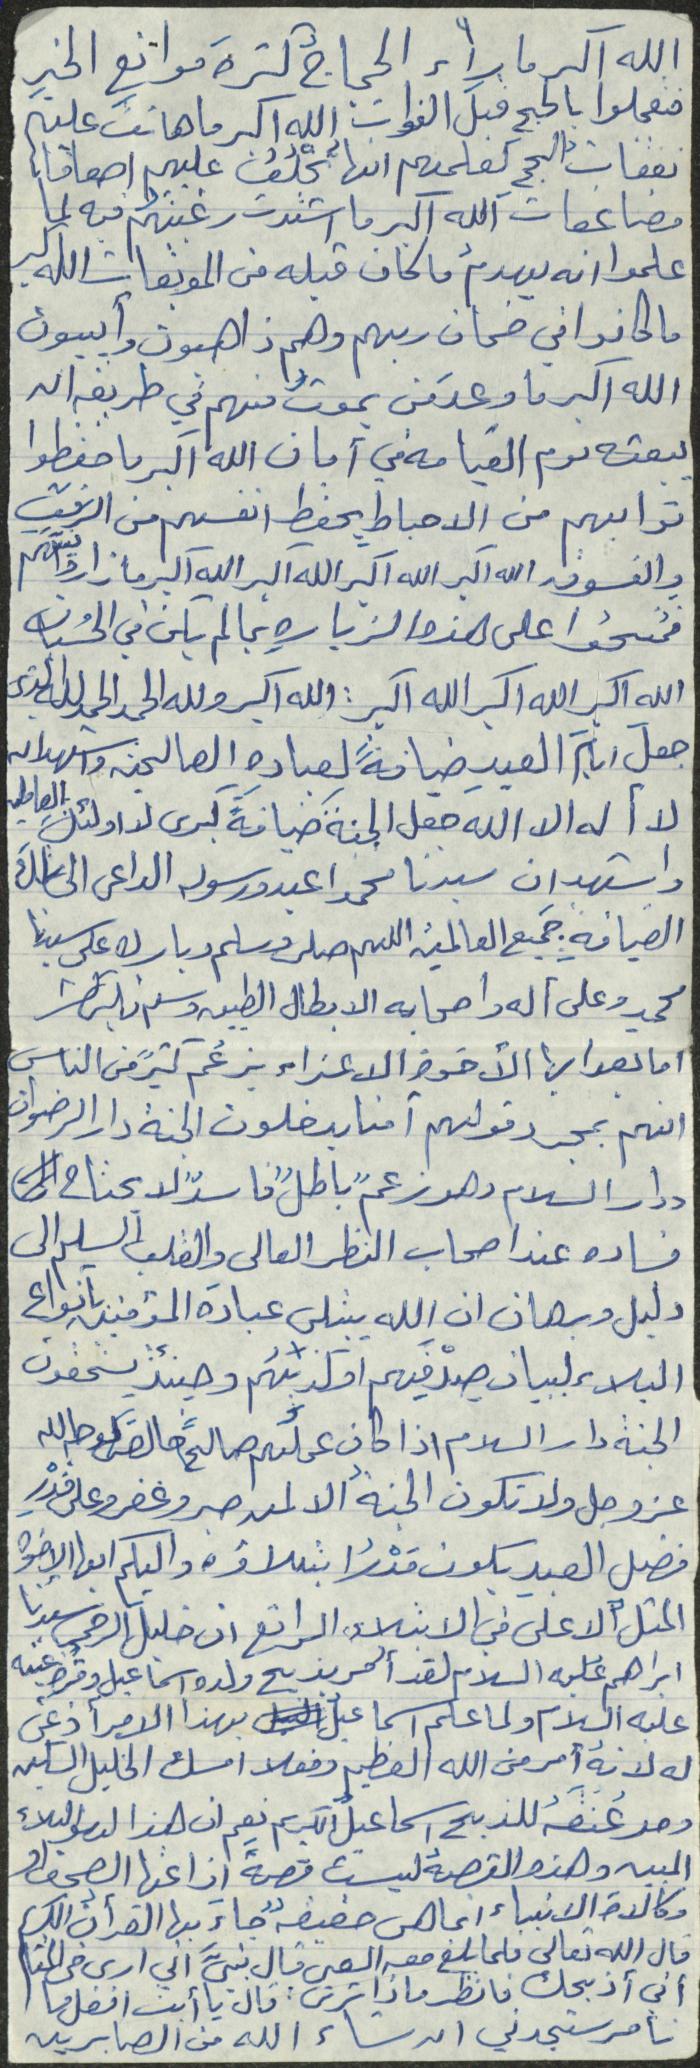 الله اكبر ما رأء الحجاج كثرة موانع الخير
فتعجلوا بالحج قبل الفوات الله اكبر ما هانت عليهم
نفقات الحج لعلمهم انها تخلف عليهم اضعافا
مضاعفات الله اكبر ما اشتدت رغبتهم فيه لما
علموا انه يهدم ما كان قبله من الموبقات الله اكبر
ما كانوا في ضمان ربهم وهم ذاهبون وأيبون
الله اكبر ما وعد من يموت منهم في طريقه انه
يبعثه يوم القيامة في أمان الله اكبر ما حفظوا
ثوابهم من الاحباط بحفظ انفسهم من الرفث
والفسوق الله اكبر الله اكبر الله اكبر الله اكبر ما زاروا بيتهم
فمنحوا على هذه الزيارة بما لم يكن في الحسبان
الله اكبر الله اكبر الله اكبر : الله اكبر ولله الحمد الحمد لله الذى
جعل ايام العيد ضيافةً لعباده الصالحين واشهد ان
لا أله الا الله جعل الجنة ضيافةً كبرى لاولئك العاملين
واشهد ان سيدنا محمدا عبده ورسوله الداعى الى تلك
الضيافة جميع العالمين اللهم صلى وسلم وبارك على سيدنا
محمد وعلى أله واصحابه الابطال الطيبين وسلم
اما بعد ايها الأخوة الاعزاء يزعم كثيرً من الناس
انهم بمجرد قولهم أمنا يدخلون الجنة دار الرضوان
ودار السلام وهو زعم باطل فاسد لا يحتاج
فساده عند اصحاب النظر العالى والقلب السليم الى
دليل وبرهان ان الله يبتلى عباده المؤمنين بأنواع
البلاء لبيان صدقهم او كذبهم وحينئذ يستحقون
الجنة دار السلام اذا كان عملهم صالحً خالصً لوجه الله
عزوجل ولا تكون الجنة ألا لمن صبر وغفر وعلى قدر
فضل العبد يكون قدر ابتلاؤه واليكم ايها الاخوة
المثل ألاعلى في الابتلاء الرائع ان خليل الرحمن سيدنا
ابراهيم عليه السلام لقد أمر بذبح ولده اسماعيل وقرة عينه
عليه السلام ولما علم اسماعيل بهذا الامر أذعن
له لانه أمر من الله العظيم وفعلا امسك الخليل السكين
ومد عنقه للذبح اسماعيل الكريم نعم ان هذا لهو البلاء
المبين وهذه القصة ليست قصةً أذاعتها الصحف او
وكالات الانباء انما هى حقيقة جاء بها القرأن الكريم
قال الله تعالى فلما بلغ معه السعى قال يبنى اني ارى فى المنام
أني أذبحك فانظر ماذا ترى : قال يا أبت افعل ما
تأمر ستجدني ان شاء الله من الصابرين